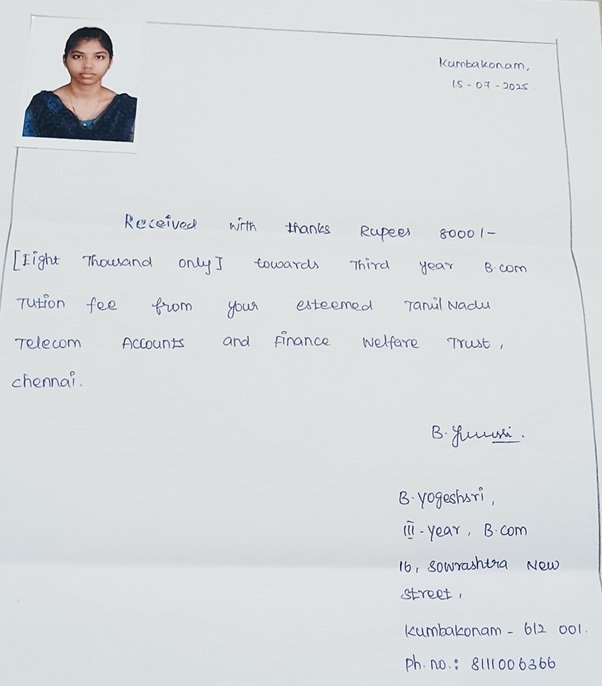 Kumbakonam,
15-07-2025.
Received with thanks Rupees 8000/-
[Eight Thousand only] towards Third year B.com
Tution fee from your esteemed Tamil Nadu
Telecom Accounts and Finance Welfare Trust,
chennai.
B.
B. yogeshsri,
III-year, B.com
16, Sowrashtra New
street,
Kumbakonam - 612 001.
Ph. no.: 8111006366